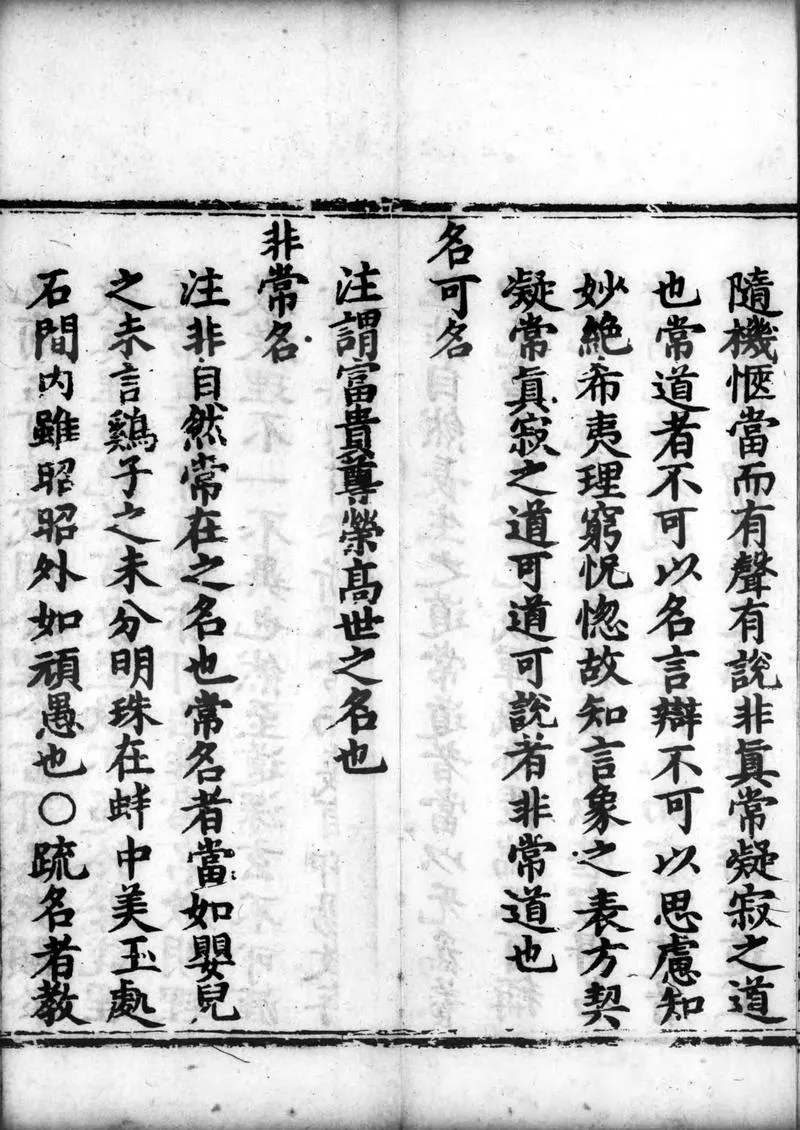 隨機愜當而有聲有說非眞常凝寂之道
也常道者不可以名言辯不可以思慮知
妙絶希夷理窮怳惚故知言象之表方契
凝常眞寂之道可道可說者非常道也
名可名
注謂富貴尊榮高世之名也
非常名
注非自然常在之名也常名者當如嬰兒
之未言鷄子之未分明珠在蚌中美玉處
石間内雖昭昭外如頑愚也〇疏名者教